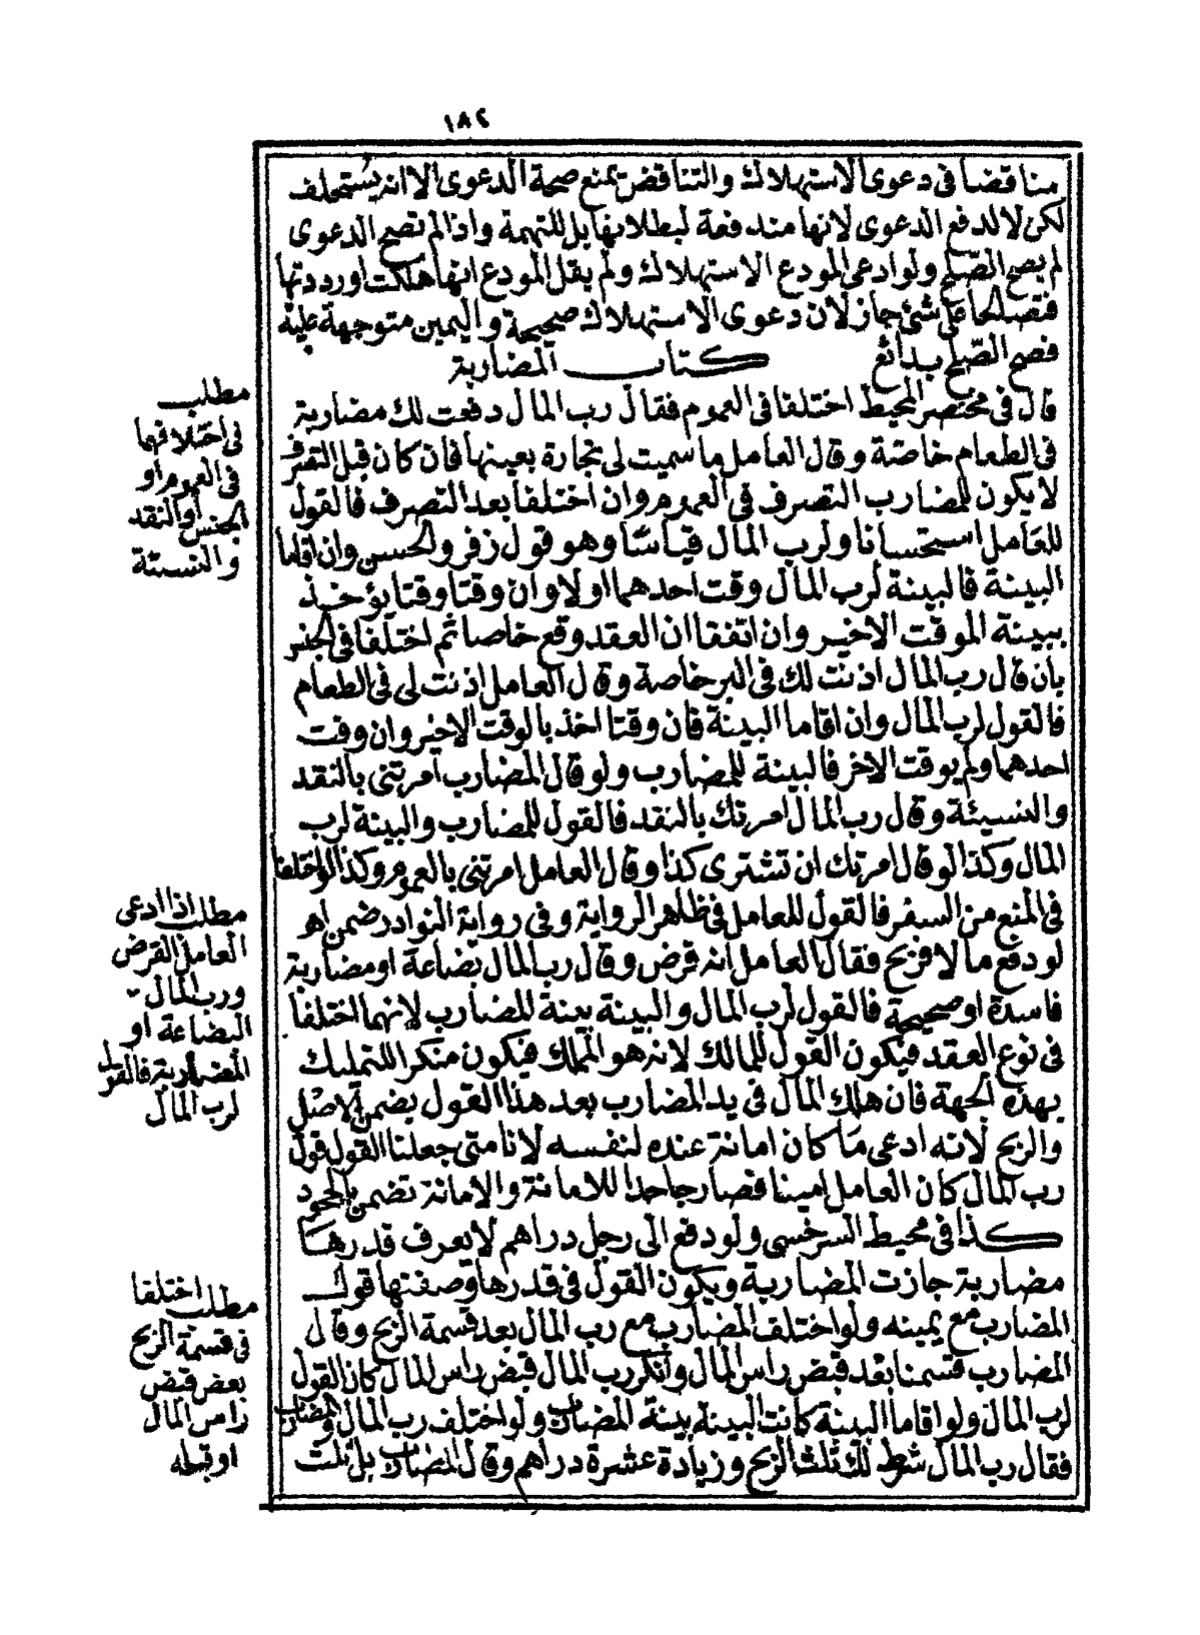 ١٨٢
مناقضا فى دعوى الاستهلاك والتناقض يمنع صحة الدعوى الا انه يستحلف
لكن لا لدفع الدعوى لانها مندفعة لبطلانها بل للتهمة واذا لم تصح الدعوى
لم يصح الصلح ولو ادعى المودع الاستهلاك ولم يقل المودع انها هلكت او رددتها
فتصالحا على شئ جاز لان دعوى الاستهلاك صحيحة واليمين متوجهة عليه
فصح الصلح بدائع كتاب المضاربة
قال فى مختصر المحيط اختلفا فى العموم فقال رب المال دفعت لك مضاربة
فى الطعام خاصة وقال العامل ما سميت لى تجارة بعينها فان كان قبل التصرف
لا يكون للمضارب التصرف فى العموم وان اختلفا بعد التصرف فالقول
للعامل استحسانا ولرب المال قياسا وهو قول زفر والحسن وان اقاما
البينة فالبينة لرب المال وقت احدهما اولا وان وقتا وقتا يؤخذ
ببينة الموقت الاخير وان اتفقا ان العقد وقع خاصا ثم اختلفا فى الجنس
بان قال رب المال اذنت لك فى البر خاصة وقال العامل اذنت لى فى الطعام
فالقول لرب المال وان اقاما البينة فان وقتا اخذ بالوقت الاخير وان وقت
احدهما ولم يوقت الاخر فالبينة للمضارب ولو قال المضارب امرتنى بالنقد
والنسيئة وقال رب المال امرتك بالنقد فالقول للمضارب والبينة لرب
المال وكذا لو قال امرتك ان تشترى كذا وقال العامل امرتنى بالعموم وكذا لو اختلفا
فى المنع من السفر فالقول للعامل فى ظاهر الرواية وفى رواية النوادر ضمن اهو
لو دفع مالا فربح فقال العامل انه قرض وقال رب المال بضاعة او مضاربة
فاسدة او صحيحة فالقول لرب المال والبينة بينة للمضارب لانهما اختلفا
فى نوع العقد فيكون القول للمالك لانه هو المملك فيكون منكرا للتمليك
بهذه الجهة فان هلك المال فى يد المضارب بعد هذا القول يضمن الاصل
والربح لانه ادعى ما كان امانة عنده لنفسه لانا متى جعلنا القول قول
رب المال كان العامل امينا فصار جاحدا للامانة والامانة تضمن بالجحود
كذا فى محيط السرخسى ولو دفع الى رجل دراهم لا يعرف قدرها
مضاربة جازت المضاربة ويكون القول فى قدرها وصفتها قول
المضارب مع يمينه ولو اختلف المضارب مع رب المال بعد قسمة الربح وقال
المضارب قسمنا بعد قبض راس المال وانكر رب المال قبض راس المال كان القول
لرب المال ولو اقاما البينة كانت البينة بينة المضارب ولو اختلف رب المال والمضارب
فقال رب المال شرط لك ثلث الربح وزيادة عشرة دراهم وقال المضارب بل ثلث
مطلب
فى اختلافهما
فى العموم او
الجنس او النقد
والنسيئة
مطلب اذا ادعى
العامل القرض
ورب المال
البضاعة او
المضاربة فالقول
لرب المال
مطلب اختلفا
فى قسمة الربح
بعض قبض
راس المال
او قبله